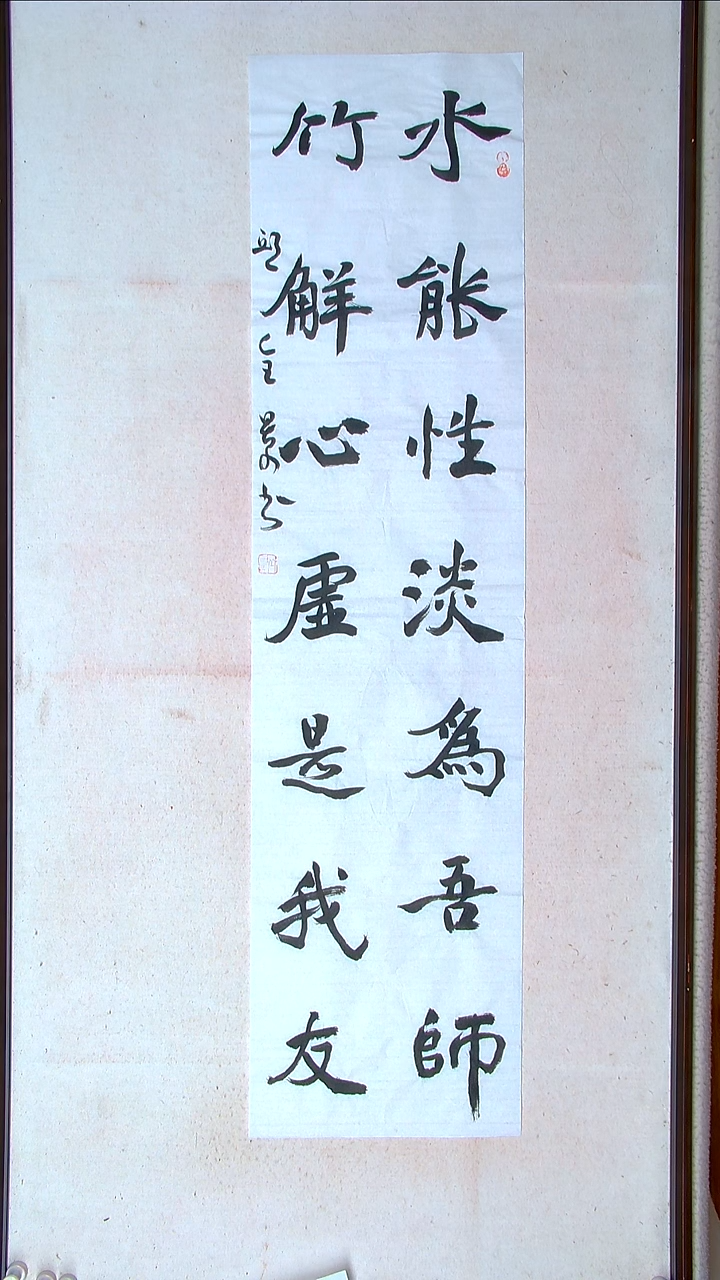 水能性淡為吾師
竹解心虛是我友